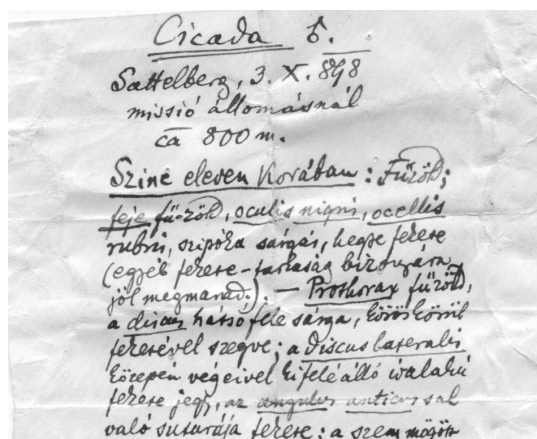 Cicada ♂.
Sattelberg, 3. X. 898
missió állomásnál
ca 800 m.
Szine eleven korában: Fűzöld;
feje fűzöld, oculis nigris, ocellis
rubris, szipóka sárgás, hegye fekete
(egyéb fekete-tarkaság bizonyára
jól megmarad.). — Prothorax fűzöld,
a discus hátsó fele sárga, köröskörül
feketével szegve; a discus lateralis
közepén végeivel kifelé álló ívalakú
fekete jegy, az angulus anticussal
való suturája fekete; a szem mögött